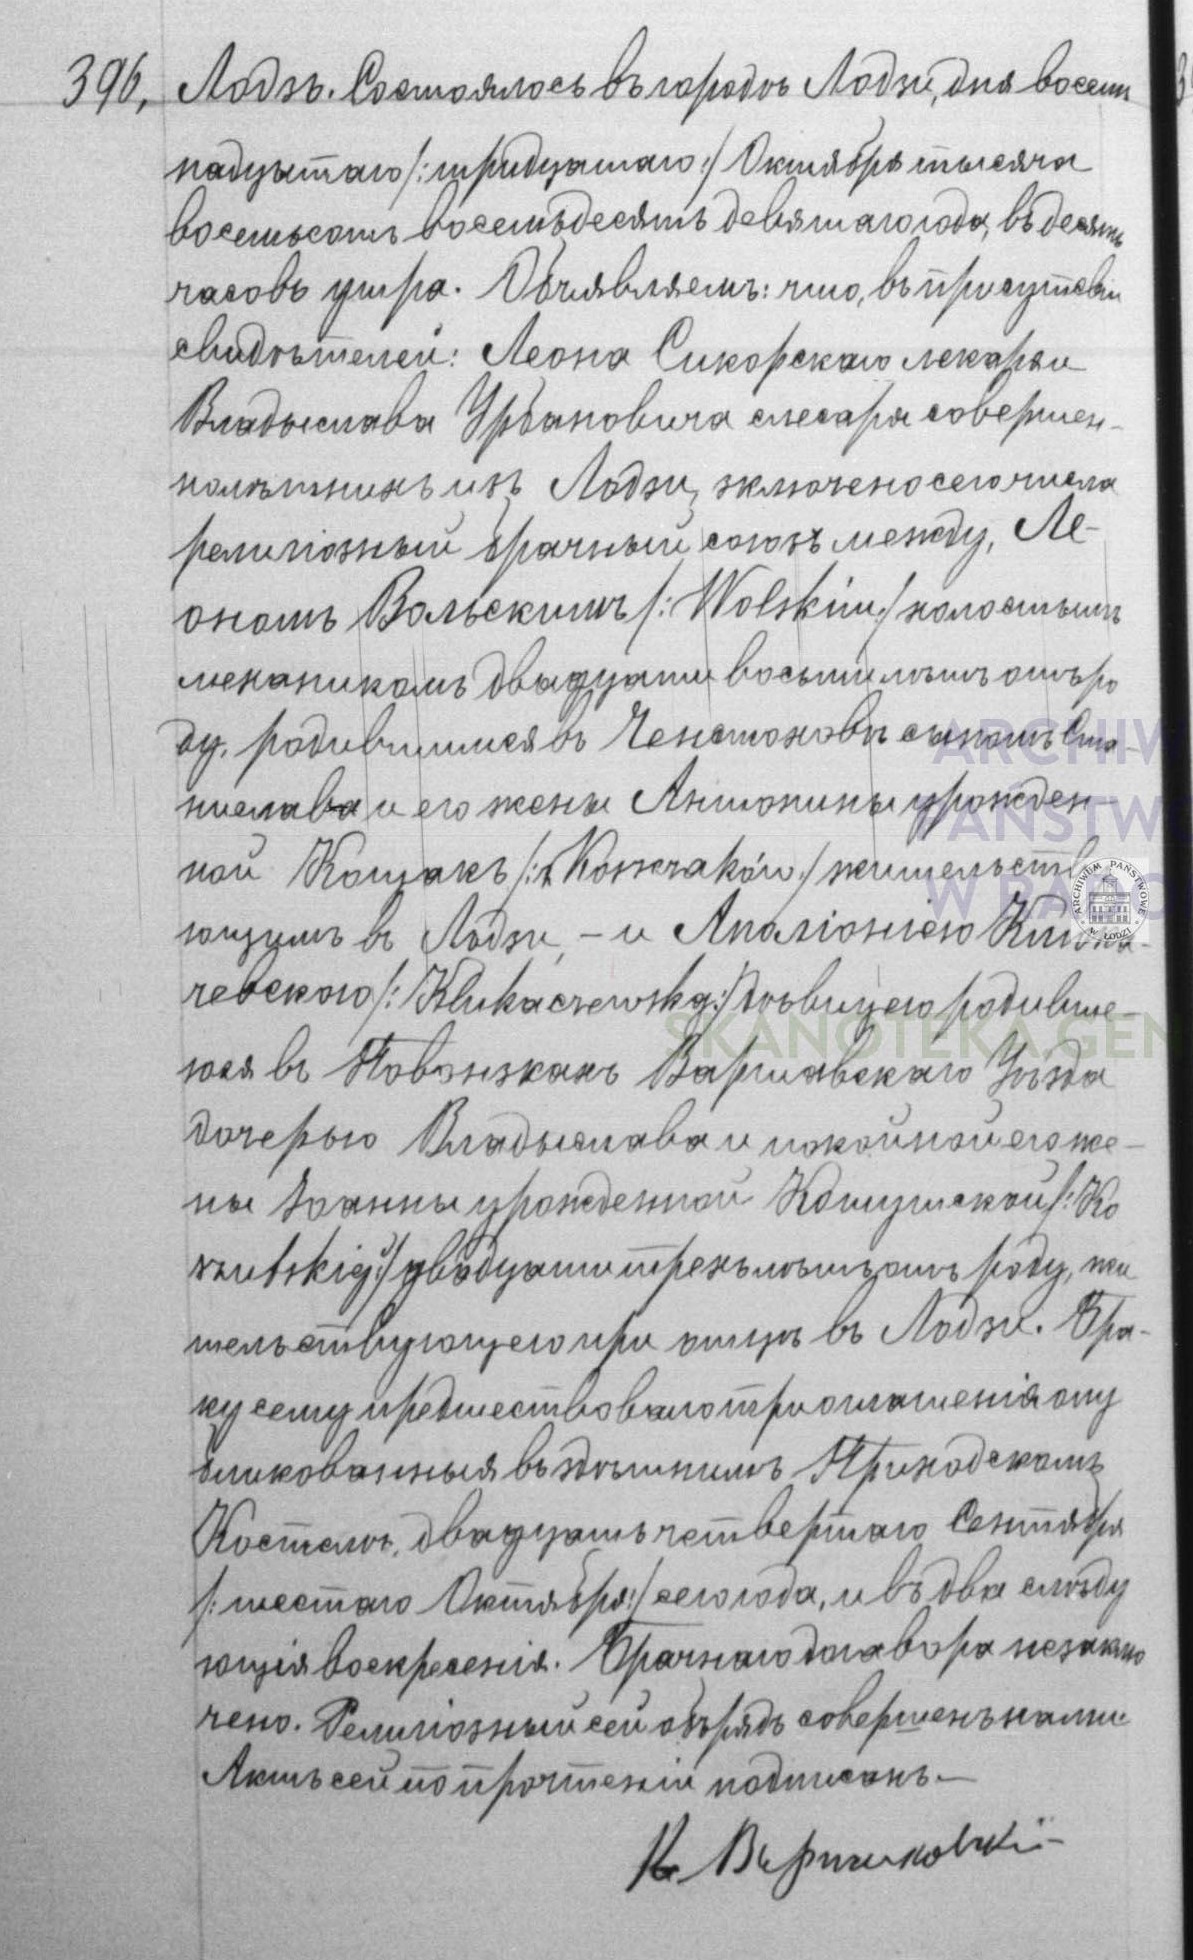 396, Лодзь. Состоялось въ городѣ Лодзи, дня восем
надцатаго /:тридцатаго:/ Октября тысяча
восемьсотъ восемьдесятъ девятаго года, въ десять
часовъ утра. Объявляемъ: что, въ присутствіи
свидѣтелей: Леона Сикорскаго лекаря и
Владыслава Урбановича слесаря совершен-
нолѣтнихъ изъ Лодзи, заключено сего числа
религіозный брачный союзъ между, Ле-
ономъ Вольскимъ /:Wolskim:/ холостымъ
механикомъ двадцати восьми лѣтъ отъ ро
ду, родившимся въ Ченстоховѣ сыномъ Ста-
нислава и его жены Антонины урожден
ной /:z Koszczaków:/ жительств
ющимъ въ Лодзи, – и Аполіоніею
чевскою /:Klukaczewską:/ дѣвицею родивше-
юся въ Повонзкахъ Варшавскаго Уѣзда
дочерью Владыслава и покойной его же-
ны Іоанны урожденной Кошутской /:Ko
szutskiej:/ двадцати трехъ лѣтъ отъ роду, жи
тельствующею при отцѣ въ Лодзи. Бра-
ку сему предшествовало три оглашенія опу
бликованныя въ здѣшнимъ Приходскомъ
Костелѣ, двадцать четвертаго Сентября
/:шестаго Октября:/ сего года, и въ два слѣду
ющія воскресенія. Брачнаго договора незаклю
чено. Религіозный сей обрядъ совершенъ нами
Актъ сей по прочтеніи подписанъ.—
ARCHIW
PAŃSTWO
W
ARCHIWUM PAŃSTWOWE W ŁODZI
SKANOTEKA.GEN